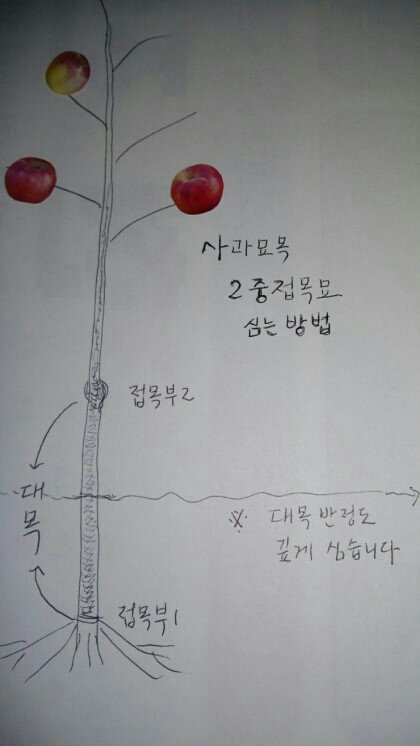 사과묘목
2중접목묘
심는방법
접목부2
대목
※ 대목 반정도
깊게 심습니다
접목부1